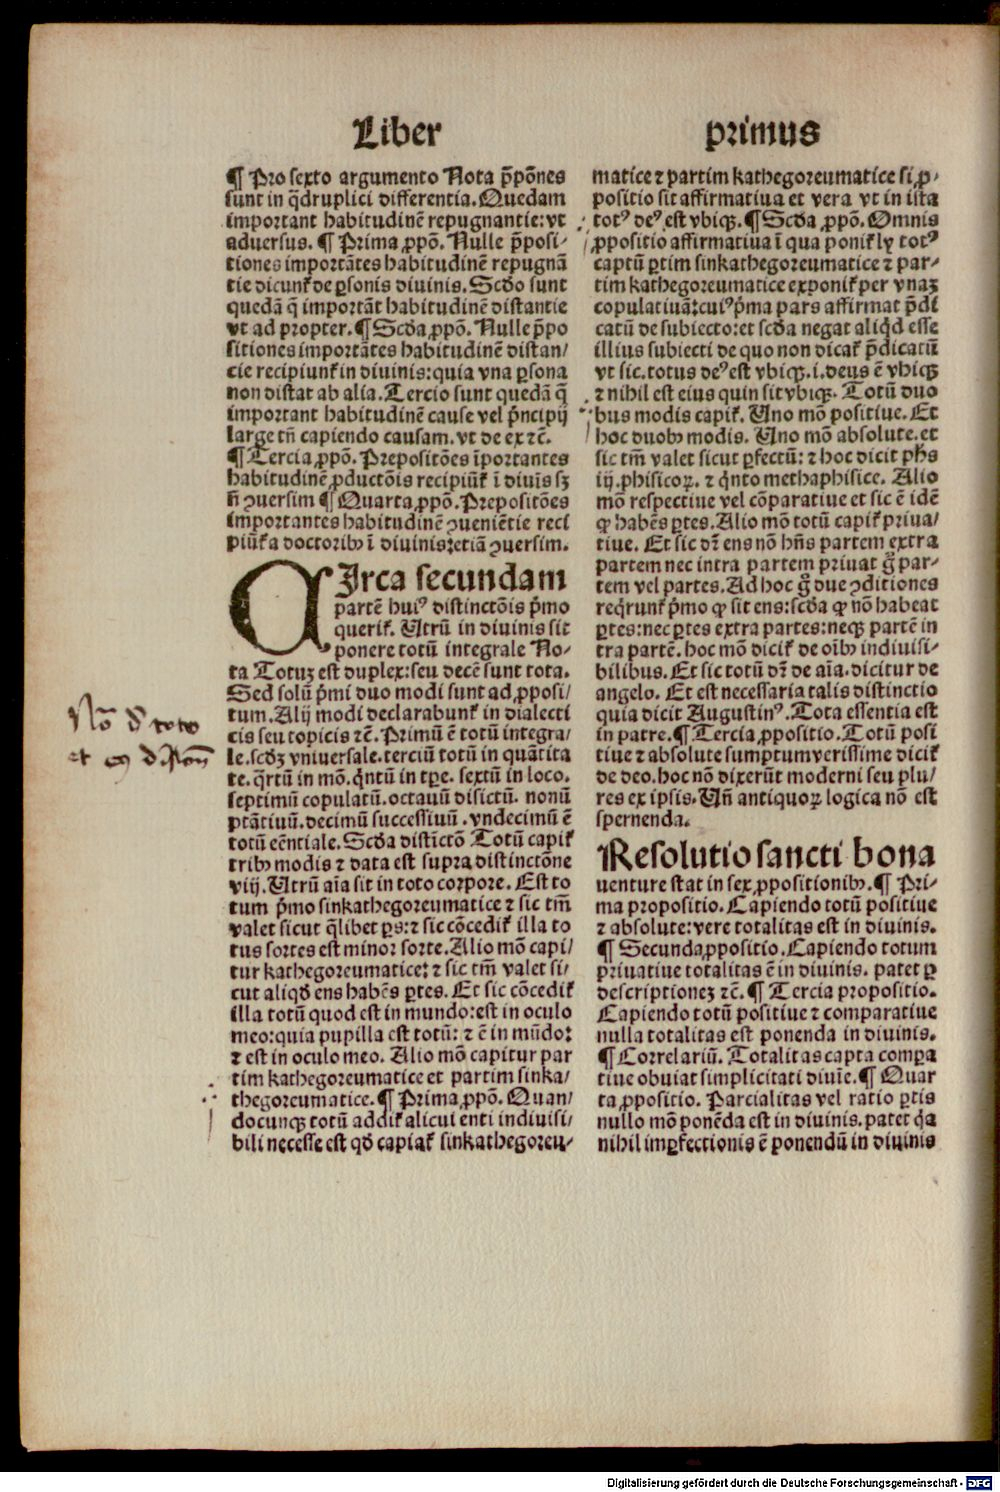 Liber primus
¶ Pro sexto argumento Nota p̄pōnes
sunt in q̄druplici differentia. Quedam
important habitudinē repugnantie: vt
aduersus. ¶ Prima ꝓpō. Nulle p̄posi/
tiones importātes habitudinē repugnā
tie dicunt᷑ de ꝑsonis diuinis. Scd̄o sunt
quedā q̄ importāt habitudinē distantie
vt ad propter. ¶ Scd̄a ꝓpō. Nulle p̄po
sitiones importātes habitudinē distan/
cie recipiunt᷑ in diuinis: quia vna ꝑsona
non distat ab alia. Tercio sunt quedā q̄
important habitudinē cause vel p̄ncipij
large tn̄ capiendo causam. vt de ex ꝛc̄.
¶ Tercia ꝓpō. Prepositōes īportantes
habitudinē ꝓductōis recipiūt᷑ ī diuīs sꝫ
n̄ ꝯuersim ¶ Quarta ꝓpō. Prepositōes
importantes habitudinē ꝯueniētie reci
piūt᷑ a doctoribꝰ ī diuinis: etiā ꝯuersim.
CIrca secundam
partē huiꝰ distinctōis p̄mo
querit᷑. Utrū in diuinis sit
ponere totū integrale No-
ta Totuꝫ est duplex: seu decē sunt tota.
Sed solū p̄mi duo modi sunt ad ꝓposi/
tum. Alij modi declarabunt᷑ in dialecti
cis seu topicis ꝛc̄. Primū ē totū integra/
le. scd̄ꝫ vniuersale. terciū totū in quātita
te. q̄rtū in mō. q̄ntū in tꝑe. sextū in loco.
septimū copulatū. octauū disictū. nonū
ptātiuū. decimū successiuū. vndecimū ē
totū eēntiale. Scd̄a distīctō Totū capit᷑
tribꝰ modis ⁊ data est supra distinctōne
viij. Utrū aīa sit in toto corpore. Est to
tum p̄mo sinkathegoreumatice ⁊ sic tm̄
valet sicut q̄libet ꝑs: ⁊ sic cōcedit᷑ illa to
tus sortes est minor sorte. Alio mō capi/
tur kathegoreumatice: ⁊ sic tm̄ valet si/
cut aliqd̄ ens habēs ꝑtes. Et sic cōcedit᷑
illa totū quod est in mundo: est in oculo
meo: quia pupilla est totū: ⁊ ē in mūdo:
⁊ est in oculo meo. Alio mō capitur par
tim kathegoreumatice et partim sinka/
thegoreumatice. ¶ Prima ꝓpō. Quan/
docunqꝫ totū addit᷑ alicui enti indiuisi/
bili necesse est qd̄ capiat᷑ sinkathegoreu-
matice ⁊ partim kathegoreumatice si ꝓ-
positio sit affirmatiua et vera vt in ista
totꝰ deꝰ est vbiqꝫ. ¶ Scd̄a ꝓpō. Omnis
ꝓpositio affirmatiua ī qua ponit᷑ ly totꝰ
captū ꝑtim sinkathegoreumatice ⁊ par-
tim kathegoreumatice exponit᷑ per vnaꝫ
copulatiuā: cuiꝰ p̄ma pars affirmat p̄di
catū de subiecto: et scd̄a negat aliqd̄ esse
illius subiecti de quo non dicat᷑ p̄dicatū
vt sic. totus deꝰ est vbiqꝫ. i. deus ē vbiqꝫ
⁊ nihil est eius quin sit vbiqꝫ. Totū duo
bus modis capit᷑. Uno mō positiue. Et
hoc duobꝰ modis. Uno mō absolute. et
sic tm̄ valet sicut ꝑfectū: ⁊ hoc dicit ph̄s
iij. phisicoꝝ. ⁊ q̄nto methaphisice. Alio
mō respectiue vel cōparatiue et sic ē idē
ꝙ habēs ꝑtes. Alio mō totū capit᷑ priua/
tiue. Et sic dr̄ ens nō hn̄s partem extra
partem nec intra partem priuat g̊ par-
tem vel partes. Ad hoc g̊ due ꝯditiones
reqͥrunt᷑ p̄mo ꝙ sit ens: scd̄a ꝙ nō habeat
ꝑtes: nec ꝑtes extra partes: neqꝫ partē in
tra partē. hoc mō dicit᷑ de oībꝰ indiuisi-
bilibus. Et sic totū dr̄ de aīa. dicitur de
angelo. Et est necessaria talis distinctio
quia dicit Augustinꝰ. Tota essentia est
in patre. ¶ Tercia ꝓpositio. Totū posi
tiue ⁊ absolute sumptum verissime dicit᷑
de deo. hoc nō dixerūt moderni seu plu/
res ex ipsis. Un̄ antiquoꝝ logica nō est
spernenda.
Resolutio sancti bona
uenture stat in sex ꝓpositionibꝰ. ¶ Pri-
ma propositio. Capiendo totū positiue
⁊ absolute: vere totalitas est in diuinis.
¶ Secunda ꝓpositio. Capiendo totum
priuatiue totalitas ē in diuinis. patet ꝑ
descriptionez ꝛc̄. ¶ Tercia propositio.
Capiendo totū positiue ⁊ comparatiue
nulla totalitas est ponenda in diuinis.
¶ Correlariū. Totalitas capta compa
tiue obuiat simplicitati diuīe. ¶ Quar
ta ꝓpositio. Parcialitas vel ratio ꝑtis
nullo mō ponēda est in diuinis. patet qͣ
nihil imꝑfectionis ē ponendū in diuinis
Nō d̄ toto
Digitalisierung gefördert durch die Deutsche Forschungsgemeinschaft - DFG